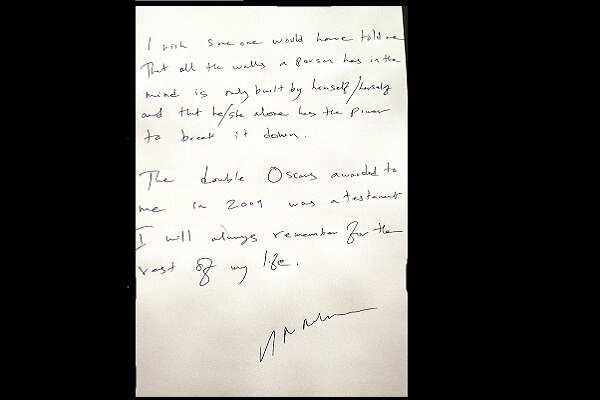 I wish some one would have told me
That all the walls a person has in the
mind is only built by himself/herself
and tht he/she alone has the power
to break it down.
The double Oscars awarded to
me in 2009 was a testament
I will always remember for the
rest of my life.